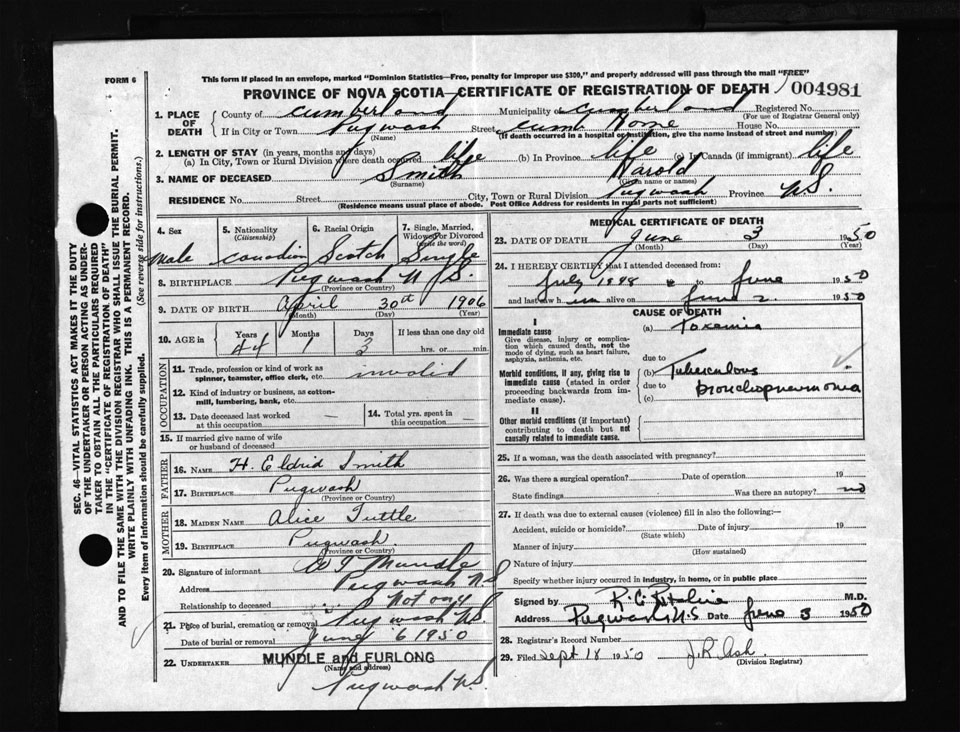 FORM 6
This form if placed in an envelope, marked "Dominion Statistics—Free, penalty for improper use $300," and properly addressed will pass through the mail "FREE"
PROVINCE OF NOVA SCOTIA—CERTIFICATE OF REGISTRATION OF DEATH 004981
1. PLACE OF DEATH County of Cumberland Municipality of Cumberland Registered No.
(For use of Registrar General only)
If in City or Town Pugwash Street Cumb Home House No.
(Name) (If death occurred in a hospital or institution, give the name instead of street and number)
2. LENGTH OF STAY (in years, months and days)
(a) In City, Town or Rural Division where death occurred life (b) In Province life (c) In Canada (if immigrant) life
3. NAME OF DECEASED Smith Harold
(Surname) (Given name or names)
RESIDENCE No. Street City, Town or Rural Division Pugwash Province N.S.
(Residence means usual place of abode. Post Office Address for residents in rural parts not sufficient)
SEC. 46—VITAL STATISTICS ACT MAKES IT THE DUTY
OF THE UNDERTAKER OR PERSON ACTING AS UNDER-
TAKER TO OBTAIN ALL THE PARTICULARS REQUIRED
IN THE "CERTIFICATE OF REGISTRATION OF DEATH"
AND TO FILE THE SAME WITH THE DIVISION REGISTRAR WHO SHALL ISSUE THE BURIAL PERMIT.
WRITE PLAINLY WITH UNFADING INK. THIS IS A PERMANENT RECORD.
Every item of information should be carefully supplied. (See reverse side for instructions.)
4. Sex 5. Nationality (Citizenship) 6. Racial Origin 7. Single, Married, Widowed or Divorced (write the word)
Male Canadian Scotch Single
8. BIRTHPLACE Pugwash N.S.
(Province or Country)
9. DATE OF BIRTH April 30th 1906
(Month) (Day) (Year)
10. AGE in Years Months Days If less than one day old
44 1 3 hrs. or min.
OCCUPATION
11. Trade, profession or kind of work as spinner, teamster, office clerk, etc. invalid
12. Kind of industry or business, as cotton-mill, lumbering, bank, etc.
13. Date deceased last worked at this occupation — 14. Total yrs. spent in this occupation —
15. If married give name of wife or husband of deceased
FATHER
16. NAME H. Eldrid Smith
17. BIRTHPLACE Pugwash
(Province or Country)
MOTHER
18. MAIDEN NAME Alice Tuttle
19. BIRTHPLACE Pugwash.
(Province or Country)
20. Signature of informant Mundle
Address Pugwash N S
Relationship to deceased Not any
21. Place of burial, cremation or removal Pugwash N.S.
Date of burial or removal June 6 1950
22. UNDERTAKER MUNDLE and FURLONG
(Name and Address)
Pugwash N.S.
MEDICAL CERTIFICATE OF DEATH
23. DATE OF DEATH June 3 1950
(Month) (Day) (Year)
24. I HEREBY CERTIFY that I attended deceased from:
July 1948 to June 1950
and last saw him alive on June 2. 1950
CAUSE OF DEATH
I
Immediate cause (a) Toxemia
Give disease, injury or complication which caused death, not the mode of dying, such as heart failure, asphyxia, asthenia, etc.
due to
Morbid conditions, if any, giving rise to immediate cause (stated in order proceeding backwards from immediate cause).
(b) Tuberculous
due to bronchopneumonia
(c)
II
Other morbid conditions (if important) contributing to death but not causally related to immediate cause.
25. If a woman, was the death associated with pregnancy?
26. Was there a surgical operation? Date of operation 19
State findings Was there an autopsy? no
27. If death was due to external causes (violence) fill in also the following:—
Accident, suicide or homicide? Date of injury 19
(State which)
Manner of injury
(How sustained)
Nature of injury
Specify whether injury occurred in industry, in home, or in public place
Signed by M.D.
Address Pugwash N.S Date June 3 1950
28. Registrar's Record Number
29. Filed Sept 18 1950 J.R. Ash.
(Division Registrar)